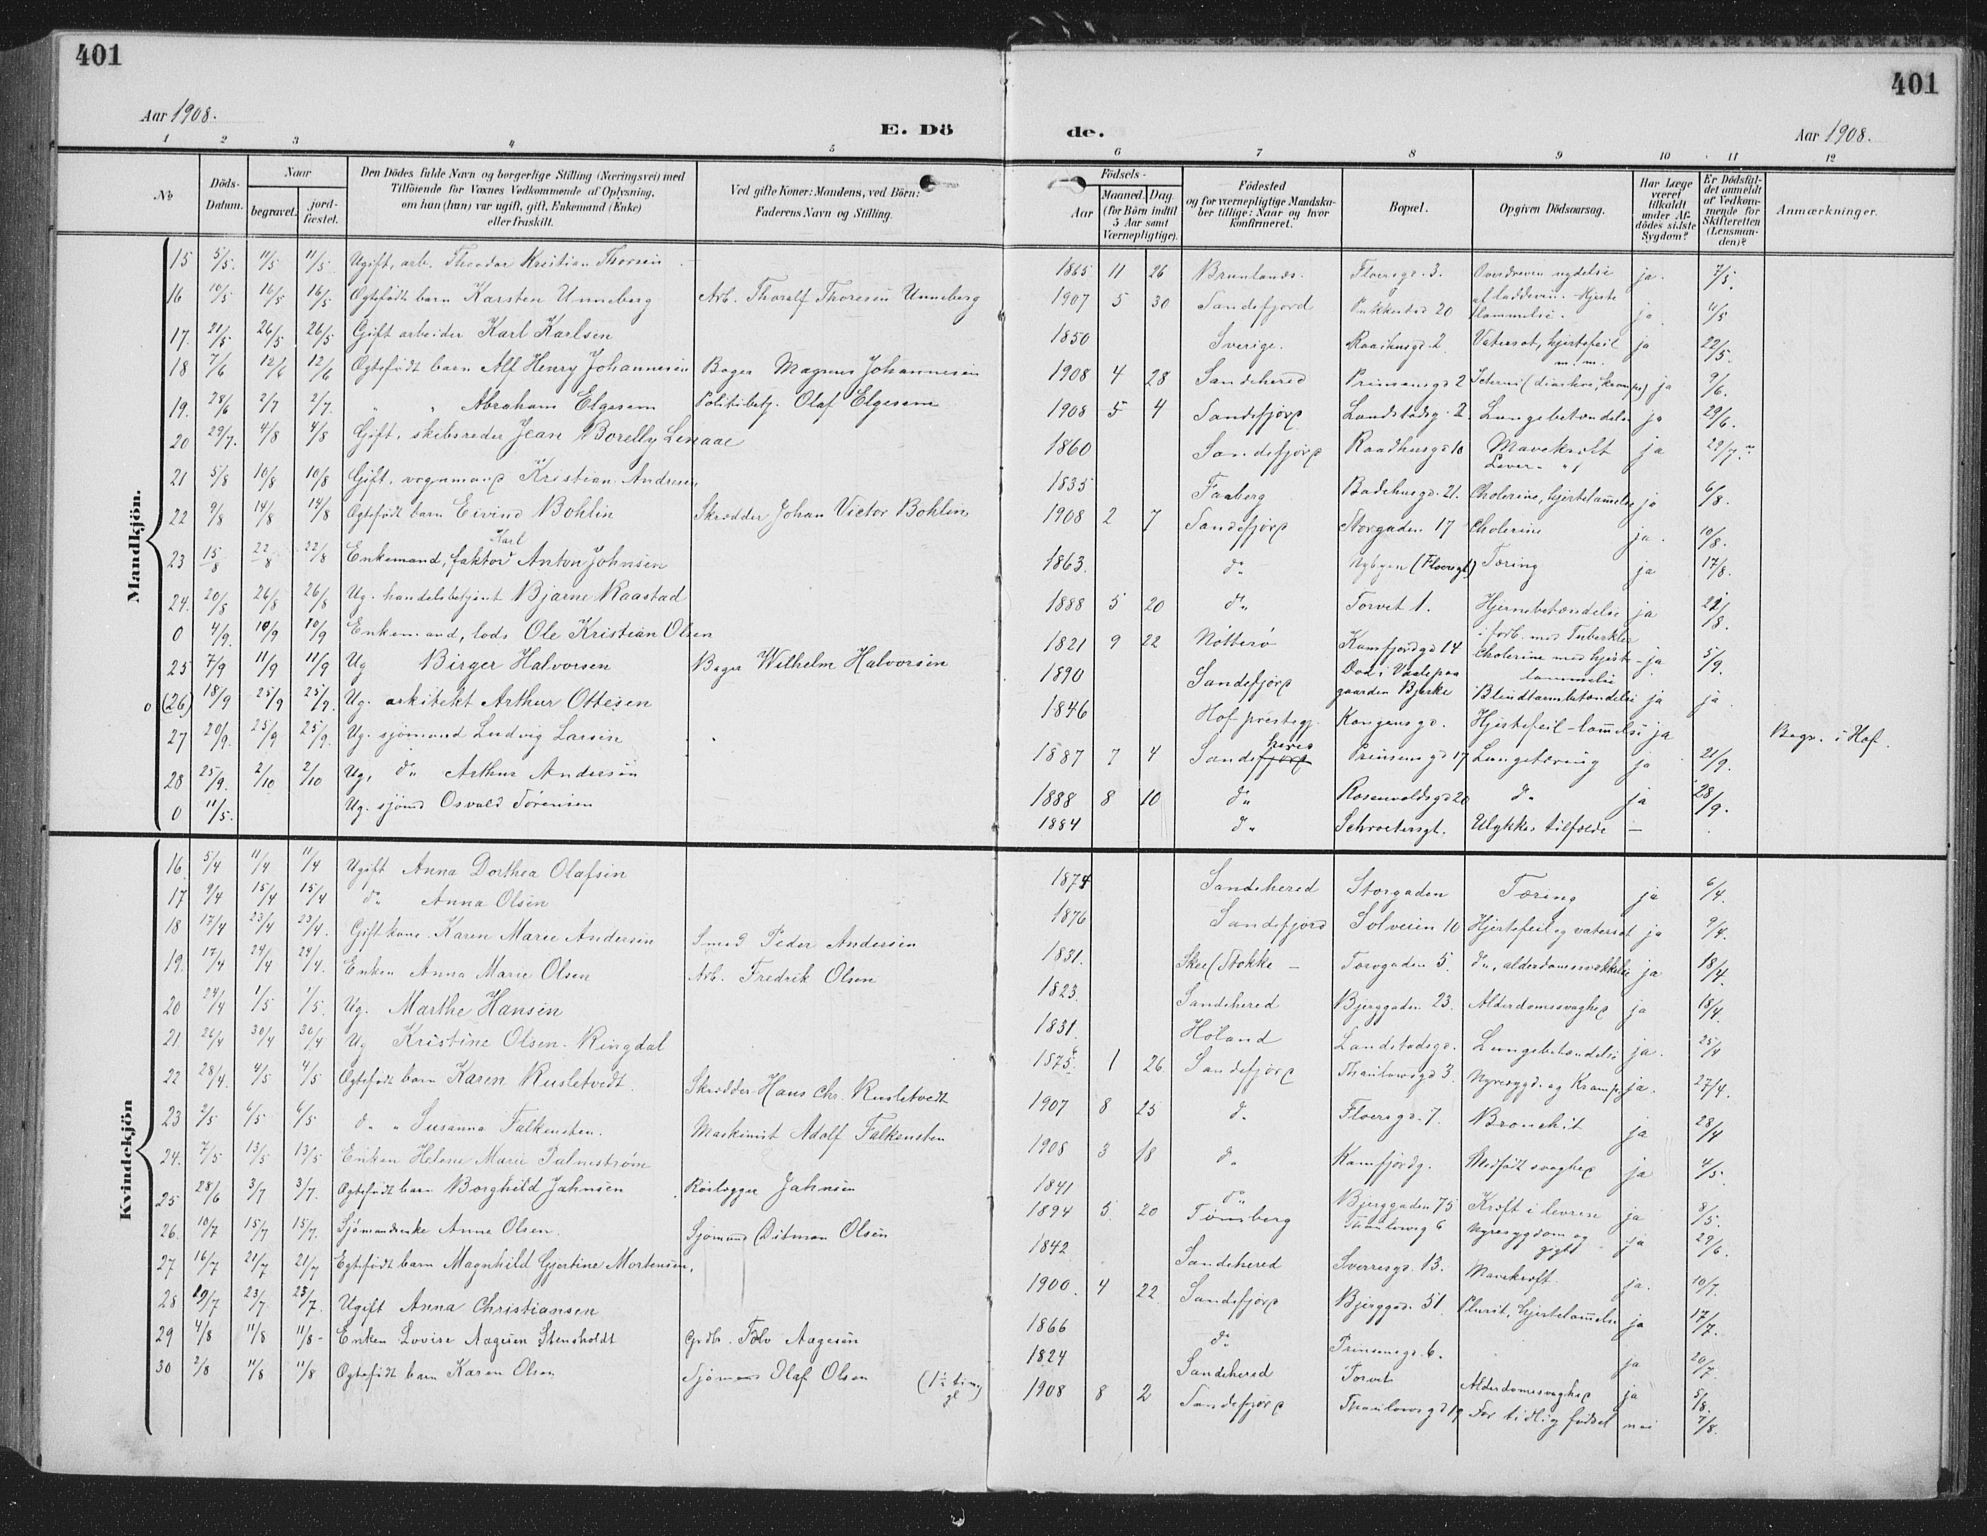 401
401
Aar 1908.
E. Dö
de.
Aar 1908.
1 2 3 4 5 6 7 8 9 10 11 12
No
Döds-Datum.
Naar
begravet.
jord-fæstet.
Den Dödes fulde Navn og borgerlige Stilling (Næringsvei) med
Tilföiende for Voxnes Vedkommende af Oplysning,
om han (hun) var ugift, gift, Enkemand (Enke)
eller fraskilt.
Ved gifte Koner: Mandens, ved Börn:
Faderens Navn og Stilling.
Födsels-
Aar
Maaned. Dag.
(for Börn indtil
5 Aar samt
Værnepligtige).
Födested
og for værnepligtige Mandska-
ber tillige: Naar og hvor
konfirmeret.
Bopæl.
Opgiven Dödsaarsag.
Har Læge
været
tilkaldt
under Af-
dödes sidste
Sygdom?
Er Dödsfal-
det anmeldt
af Vedkom-
mende for
Skifteretten
(Lensman-
den)?
Anmærkninger.
Mandkjön.
15 5/5. 11/5 11/5. Ugift, arb. Theodor Kristian Thorsen 1865 11 26 Brunlands. Floersgd. 3. Overdreven nydelse ja. 7/5.
16 10/5 16/5 16/5 Ogtefødt barn Karsten Unneberg Arb. Thoralf Thoresen Unneberg 1907 5 30 Sandefjord Pukkestad 20 ja
17. 21/5 26/5 26/5 Gift arbeider Karl Karlsen 1850 Sverige. Raadhusgd. 2 Vatersot, hjertefeil m.m. ja 22/5.
18 7/6 12/6 12/6 Ogtefødt barn Alf Henry Johannesen Bager Magnus Johannesen 1908 4 28 Sandehered Prinsensgd 2 ja 9/6.
19. 28/6 2/7 2/7. " " Abraham Elgesem Politibetj. Olaf Elgesem 1908 5 4 Sandefjord Landstadsg. 2 Lungebetændelse ja 29/6.
20 29/7. 4/8 4/8 Gift, skibsreder Jean Borelly Linaae 1860 Sandefjord Raadhusgd 10 Mavekræft Lever- " ja 29/7.
21 5/8 10/8 10/8 Gift, vognmand Kristian Andresen 1835 Faaberg Badehusgd. 21. Cholerine, hjertelammelse ja 6/8.
22 9/8 14/8 14/8 Ogtefødt barn Eivind Bohlin Skrædder Johan Victor Bohlin 1908 2 7 Sandefjord Storgaden 17 Cholerine ja. 10/8.
23 15/8 22/8 22/8 Enkemand, faktor Karl Anton Johnsen 1863. do Nybyen (Floersgt) Tæring ja 17/8.
24. 20/8 26/8 26/8 Ug. handelsbetjent Bjarne Raastad 1888 5 20 do Torvet 1. Hjernebetændelse i forb. med Tuberkler ja 21/8.
0 4/9. 10/9 10/9 Enkemand, lods Ole Kristian Olsen 1821 9 22 Nøtterø Kamfjordgd 14 Cholerine med hjerte-lammelse ja. 5/9.
25 7/9 11/9 11/9 Ug Birger Halvorsen Bager Wilhelm Halvorsen 1890 Sandefjord gaarden Bjerke Blindtarmbetændelse ja ja.
0 (26) 18/9 25/9 25/9. Ug. arkitekt Arthur Ottesen 1846 Hof præstegj. Kongensgd. Hjertefeil-lammelse ja Begr. i Hof.
27 20/9. 25/9 25/9. Ug. sjømand Ludvig Larsen 1887 7 4 Sandehered Prinsensgd 17 Lungetæring ja 21/9.
28 25/9. 2/10 2/10 Ug, do Arthur Andersen 1888 8 10 do Rosenvoldsgd 20 do ja 28/9.
0 11/5. Ug. sjømd Osvald Sørensen 1884 do Schroetersgt. Ulykkes tilfælde —
Kvindekjön
16. 5/4 11/4 11/4 Ugift Anna Dorthea Olafsen 1874 Sandehered Storgaden Tæring ja 6/4.
17 9/4 15/4 15/4 do Anna Olsen 1876 Sandefjord Solveien 10 Hjertefeil og vatersot ja 9/4.
18 17/4 23/4 23/4. Gift kone Karen Marie Andersen Smed Peder Andersen 1831. Skee (Stokke — Torvgaden 5. do, alderdomssvækkelse ja 18/4.
19. 17/4 24/4 24/4. Enken Anna Marie Olsen Arb. Fredrik Olsen 1823. Sandehered Bjerggaden 23. Alderdomssvaghed ja 18/4.
20 24/4 1/5 1/5. Ug. Marthe Hansen 1831. Høland Landstadsgd. Lungebetændelse ja. 25/4
21 26/4 30/4 30/4 Ug Kristine Olsen Ringdal 1875. 1 26. Sandefjord Thaulowsgd 3. Nyresygd. og Krampe ja. 27/4.
22 28/4. 4/5 4/5 Ogtefødt barn Karen Rusletvedt. Skrædder Hans Chr. Rusletvedt 1907 8 25 do Floersgd. 7. Bronchit ja 28/4
23 2/5 6/5 6/5 do " Susanna Falkensten. Maskinist Adolf Falkensten 1908 3 18 do Kamfjordg. Medfødt svaghed ja 4/5.
24. 7/5 13/5 13/5 Enken Helene Marie Palmstrøm 1841 do Bjerggaden 75 Kræft i leveren ja 8/5.
25 28/6 3/7 3/7. Ogtefødt barn Borghild Jahnsen Jahnsen 1894 5. 20 Tønsberg Thaulowsg 6 Nyresygdom og gigt ja 29/6.
26. 10/7 15/7 15/7. Sjømandsenke Anne Olsen. Sjømand Ditman Olsen 1842 Sandehered Sverresgd. 13. Mavekræft. ja. 10/7.
27 16/7 21/7 21/7 Egtefødt barn Magnhild Gjertine Mortensen. 1900. 4 22. Sandefjord Bjerggd. 51. Plurit, hjertelammelse ja 17/7.
28 19/7 23/7. 23/7. Ugift Anna Christiansen 1866 do Prinsensgd. 6. ja 20/7.
29 4/8 11/8 11/8- Enken Lovise Aagesen Stensholdt Grdbr. Tolv Aagesen 1824 Sandehered Torvet Alderdomssvaghed ja 5/8.
30 2/8 11/8 11/8 Ogtefødt barn Karen Olsen Sjømand Olaf Olsen (1½ time gl) 1908 8 2 Sandefjord Thaulowsgd 19 For tidlig fødsel nei 7/8.